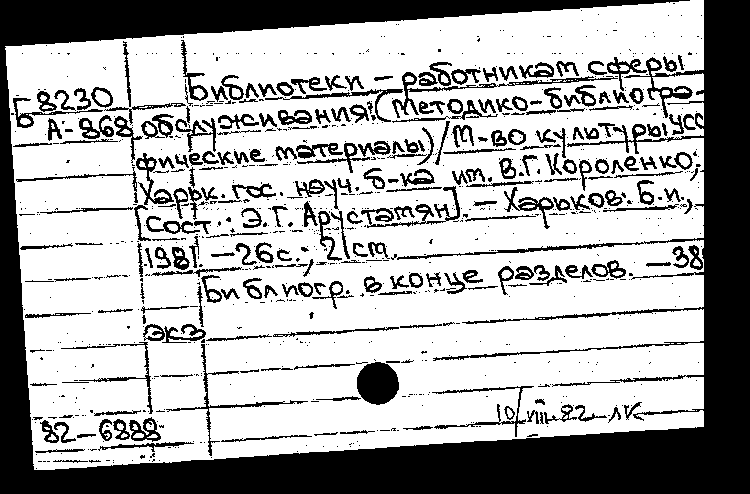 Библиотеки – работникам сферы
Б 8230
А-868 обслуживания: (Методико-библиогра-
фические материалы) / М-во культуры УСС
Харьк. гос. науч. б-ка им. В.Г. Короленко;
[Сост.: Э.Г. Арустамян]. – Харьков: Б.и.,
1981 – 26с.; 21 см.
Библиогр. в конце разделов. – 38
экз
10/VIII-82 ЛК
82-6888